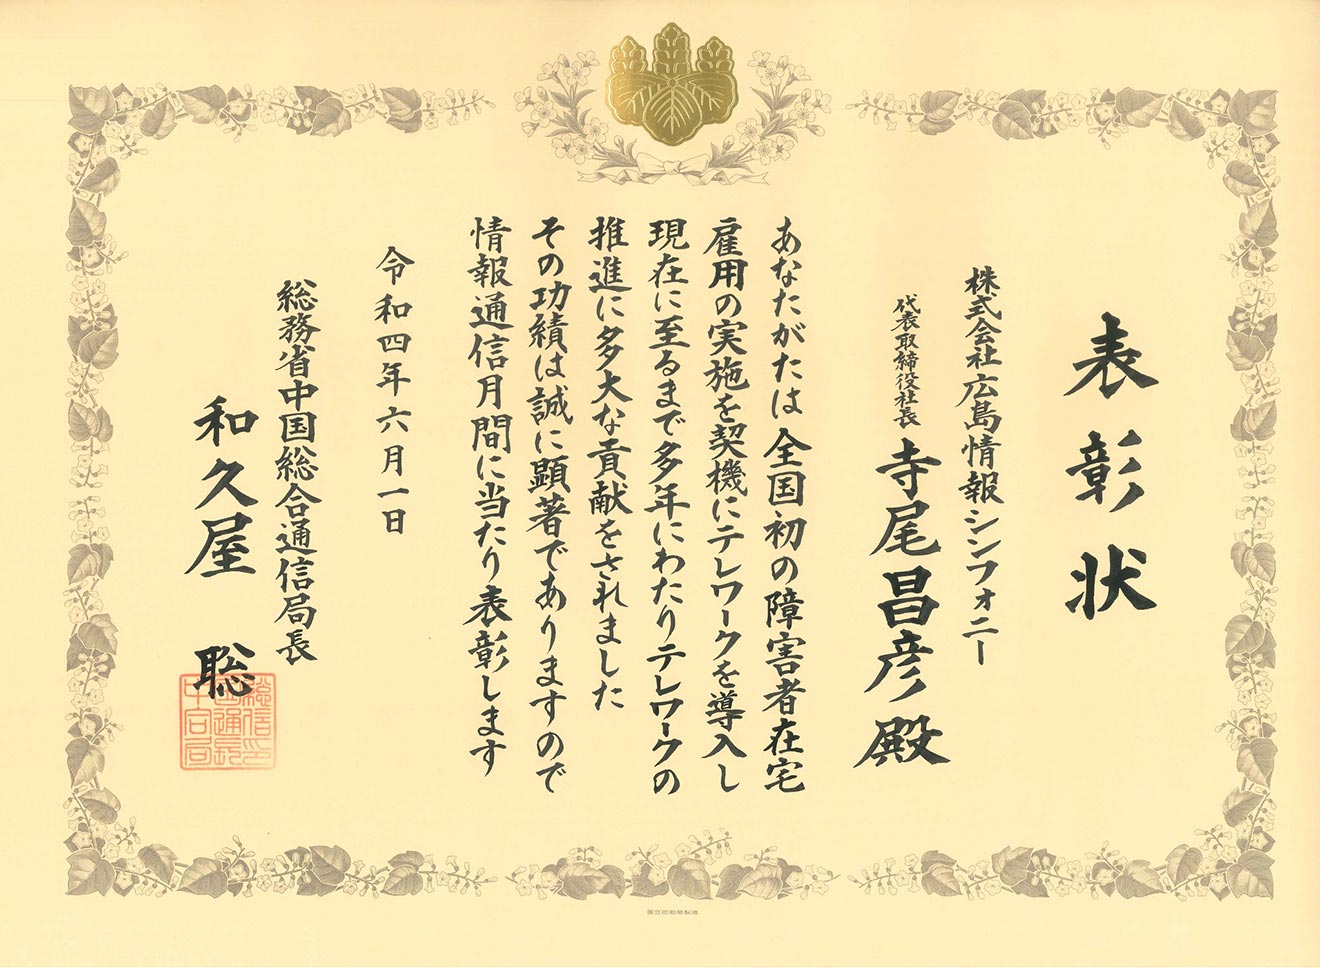 表彰状
株式会社広島情報シンフォニー
代表取締役社長 寺尾昌彦殿
あなたがたは全国初の障害者在宅
雇用の実施を契機にテレワークを導入し
現在に至るまで多年にわたりテレワークの
推進に多大な貢献をされました
その功績は誠に顕著でありますので
情報通信月間に当たり表彰します
令和四年六月一日
総務省中国総合通信局長
和久屋 聡